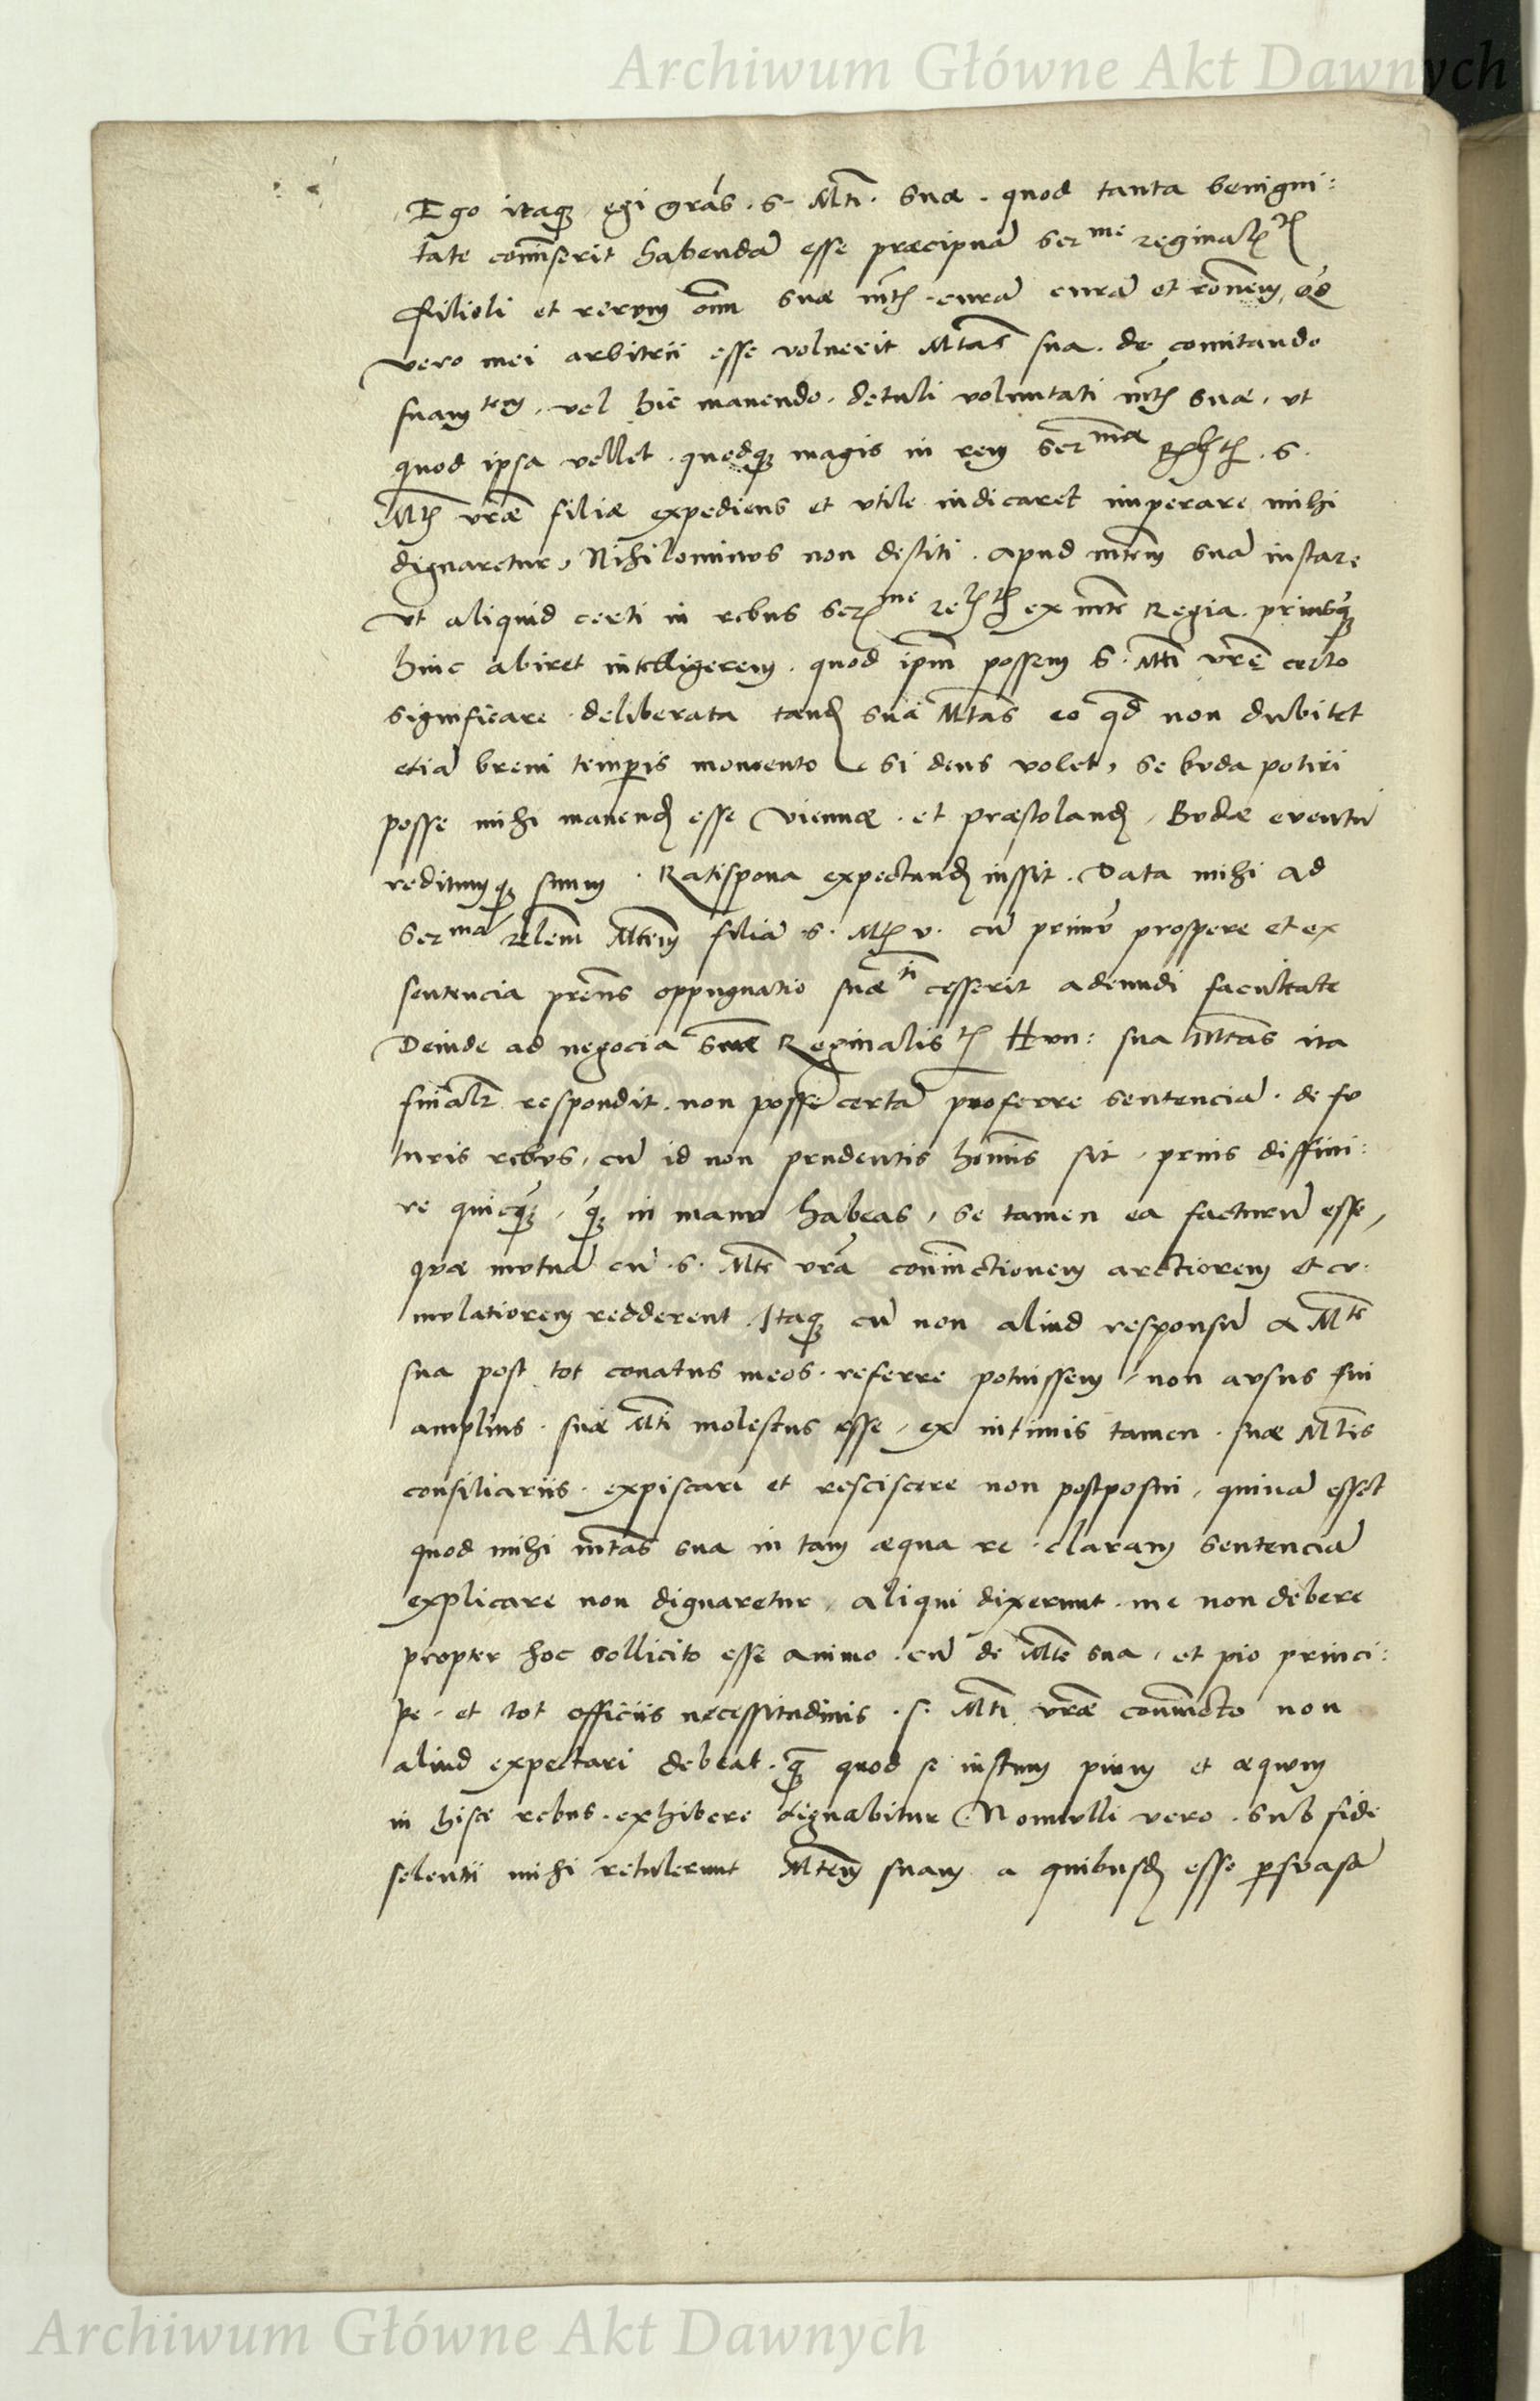 Archiwum Główne Akt Dawnych
Ego itaq₃ egi grãs . S. Mti. suæ . quod tanta benigni:
tate comiserit habendã esse præcipuã Ser me reginal
filioli et rerum oim suæ mtis curã curã et ronem, qd
vero mei arbitrii esse voluerit Mtas sua . de comitando
suam tem, vel hic manendo . detuli voluntati mtis suæ, ut
quod ipsa vellet . quodq₃ magis in rem Ser mæ . S.
Mtis vræ filiæ expediens et utile iudicaret imperare mihi
dignaretur, Nihilominus non destiti . apud mtem suã instare
ut aliquid certi in rebus Ser me ex mte Regia . priusq̃
hinc abiret intelligerem . quod ipm possem S. Mti vrę certo
significare . deliberata tand sua Mtas eo qd non dubitet
etiã brevi temporis momento si deus volet, se buda potiri
posse mihi manend esse Viennæ . et præstoland, Budæ eventũ
reditumq₃ suum . Ratispona expectand iussit . Data mihi ad
Ser mã relem Mtem filiã S. Mtis v. cũ primũ prospere et ex
sentencia prens oppugnatio suæ ti cesserit adeundi facultate
Deinde ad negocia suæ Reginalis tis Hun: sua Mtas ita
finalr respondit . non posse certã proferre sentenciã . de fu
turis rebus, cũ id non prudentis hominis sit, prius diffini:
re quicq̃, q̃ in manu habeas, se tamen ea facturũ esse,
quæ mutuã cũ S. Mte vrã coniunctionem arctiorem et cu:
mulatiorem redderent . Itaq₃ cũ non aliud responsũ a Mte
sua post tot conatus meos . referre potuissem, non ausus fui
amplius . suæ Mti molestus esse, ex intimis tamen . suæ Mtis
consiliariis . expiscari et resciscere non postposui, quinã esset
quod mihi mtas sua in tam æqua re . claram sentenciã
explicare non dignaretur, aliqui dixerunt . me non debere
propter hoc sollicito esse animo . cũ de Mte sua, et pio princi:
pe . et tot officiis necessitudinis . S. Mti vræ coniuncto non
aliud expectari debeat . q̃ quod se iustum pium et æquum
in hisce rebus . exhibere dignabitur . Nonnulli vero . sub fide
selentii mihi retulerunt Mtem suam a quibusd esse psuasã
Archiwum Główne Akt Dawnych